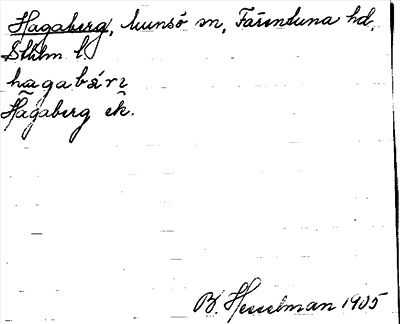 Hagaberg, Munsö sn, Färentuna hd,
Sthlm l
hagabäri
Hagaberg ek.
B. Hesselman 1905